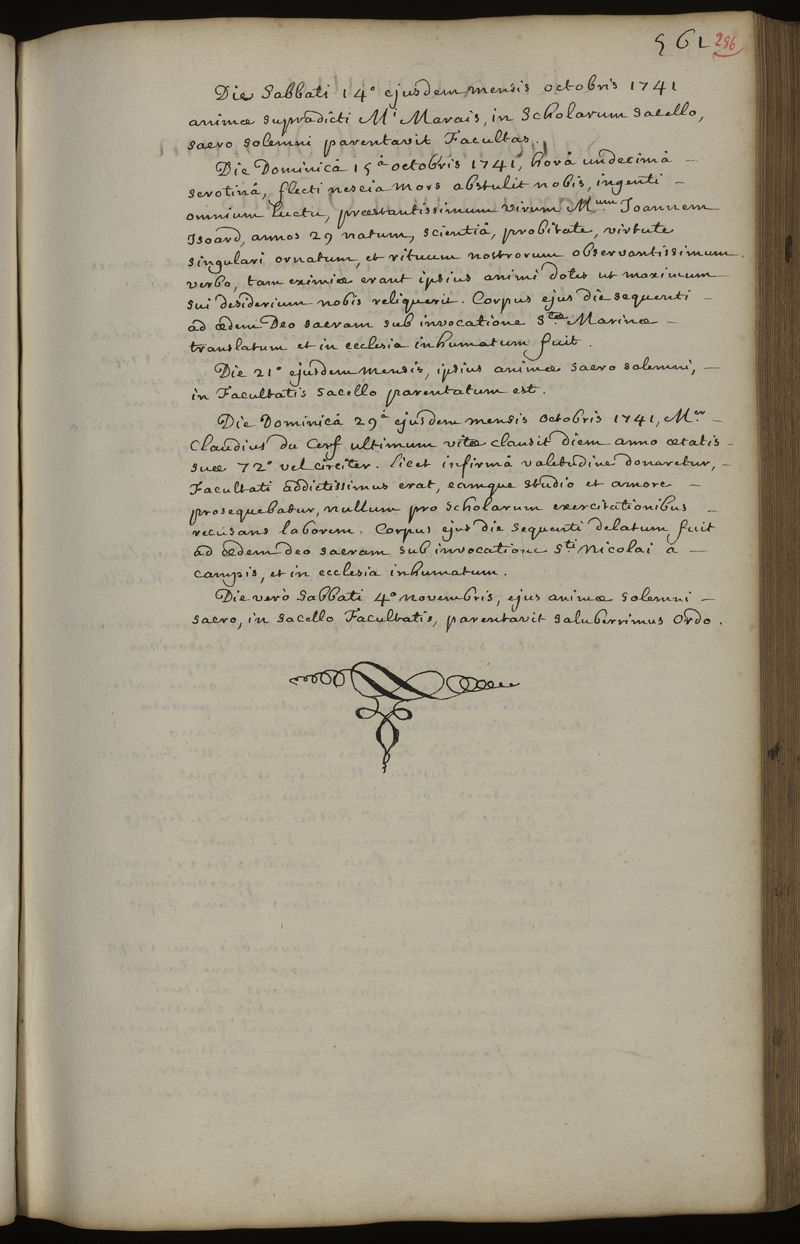 561 286
Die Sabbati 14° ejusdem mensis octobris 1741
animæ supradicti Mi Marais, in Scholarum Sacello,
sacro solemni parentavit Facultas.
Die Dominicâ 15â octobris 1741, horâ undecimâ –
serotinâ, flecti nescia mors abstulit nobis, ingenti –
omnium luctu, præstantissimum virum M.um Joannem
Isoard, annos 29 natum, scientiâ, probitate, virtute
singulari ornatum, et rituum nostrorum observantissimum.
verbo, tam eximiæ erant ipsius animi dotes ut maximum
sui desiderium nobis reliquerit. Corpus ejus die sequenti –
ad ædem Deo sacram sub invocatione S.tæ Marinæ –
translatum et in ecclesia inhumatum fuit.
Die 21° ejusdem mensis, ipsius animæ sacro solemni, –
in Facultatis Sacello parentatum est.
Die Dominicâ 29â ejusdem mensis octobris 1741, M.er –
Claudius du Cerf ultimum vitæ clausit diem anno ætatis –
suæ 72° vel circiter. licet infirmâ valetudine donaretur, –
Facultati addictissimus erat, eamque studio et amore –
prosequebatur, nullum pro scholarum exercitationibus –
recusans laborem. Corpus ejus die sequenti delatum fuit
ad ædem deo sacram sub invocatione Sti Nicolai à –
campis, et in ecclesia inhumatum.
Die verò Sabbati 4° novembris, ejus animæ solemni –
sacro, in sacello Facultatis, parentavit saluberrimus Ordo.